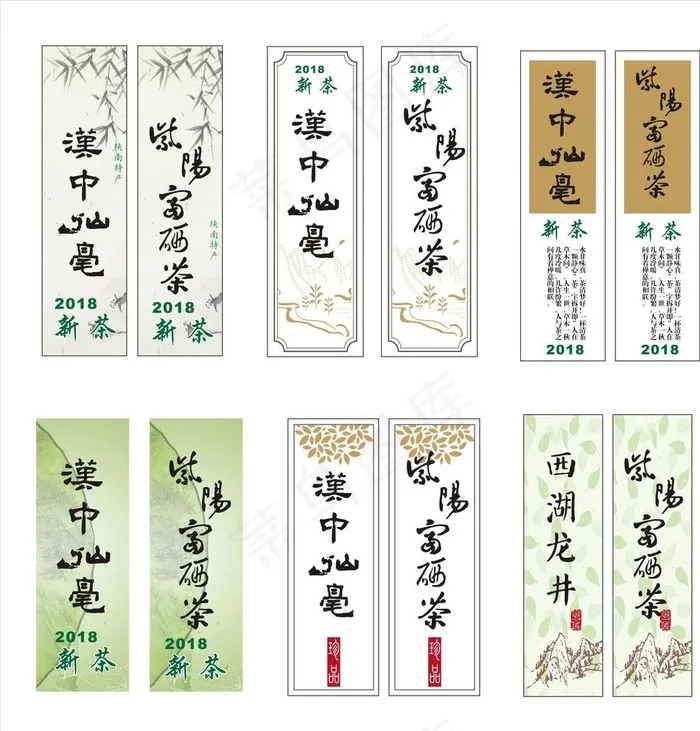 漢中仙毫
陕南特产
2018
新茶
紫陽富硒茶
陕南特产
2018
新茶
2018
新茶
漢中仙毫
2018
新茶
紫陽富硒茶
漢中仙毫
新茶
水甘味真,茶清梦好!一杯清茶
一颗静心“茶”字拆开即“人在
草木间”,人生一世,草木一秋
几度冷暖,几许纷繁,人与茶之
间有着禅意的相联。
2018
紫陽富硒茶
新茶
水甘味真,茶清梦好!一杯清茶
一颗静心“茶”字拆开即“人在
草木间”,人生一世,草木一秋
几度冷暖,几许纷繁,人与茶之
间有着禅意的相联。
2018
漢中仙毫
2018
新茶
紫陽富硒茶
2018
新茶
漢中仙毫
珍品
紫陽富硒茶
珍品
西湖龙井
紫陽富硒茶
菜鸟图库
菜鸟图库